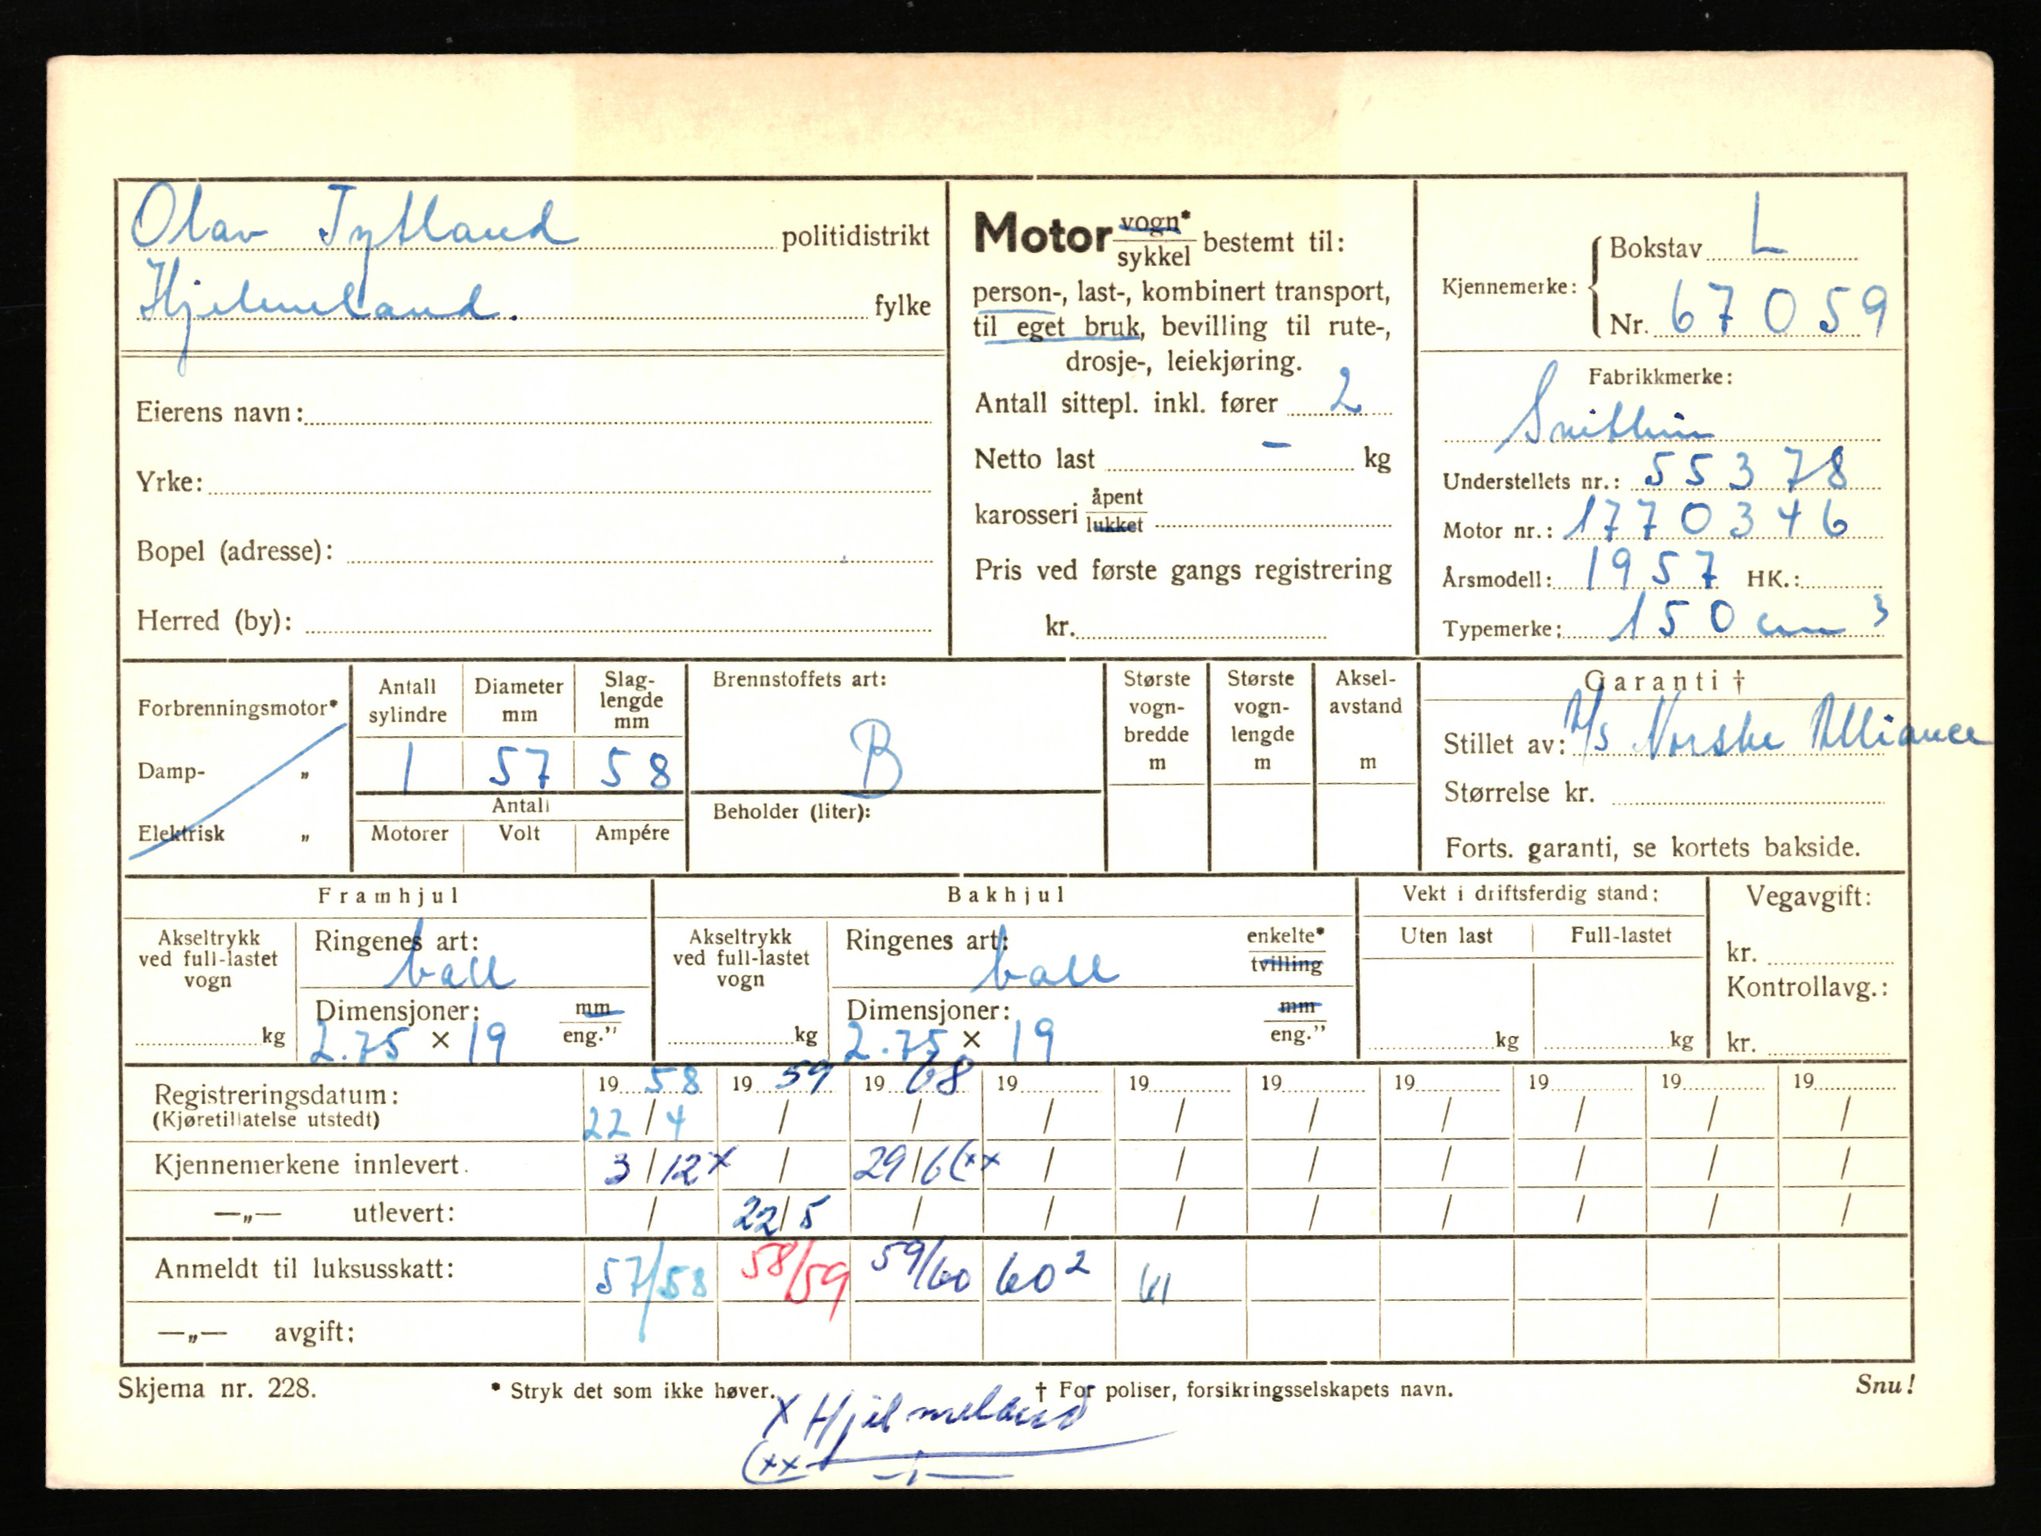 Olav Tytland politidistrikt
Hjelmeland. fylke
Eierens navn:
Yrke:
Bopel (adresse):
Herred (by):
Motor vogn* / sykkel bestemt til:
person-, last-, kombinert transport,
til eget bruk, bevilling til rute-,
drosje-, leiekjøring.
Antall sittepl. inkl. fører 2
Netto last – kg
karosseri åpent / lukket
Pris ved første gangs registrering
kr.
Kjennemerke: Bokstav L
Nr. 67059
Fabrikkmerke:
Understellets nr.: 55378
Motor nr.: 1770346
Årsmodell: 1957 HK.:
Typemerke: 150 cm³
Forbrenningsmotor*
Damp- „
Elektrisk „
Antall sylindre
Diameter mm
Slag-lengde mm
1 57 58
Antall
Motorer Volt Ampére
Brennstoffets art:
B
Beholder (liter):
Største vogn-bredde m
Største vogn-lengde m
Aksel-avstand m
Garanti †
Stillet av: A/s Norske Alliance
Størrelse kr.
Forts. garanti, se kortets bakside.
Framhjul
Akseltrykk ved full-lastet vogn
kg
Ringenes art:
ball
Dimensjoner: mm / eng."
2.75 × 19
Bakhjul
Akseltrykk ved full-lastet vogn
kg
Ringenes art: enkelte* / tvilling
ball
Dimensjoner: mm / eng."
2.75 × 19
Vekt i driftsferdig stand:
Uten last Full-lastet
kg kg
Vegavgift:
kr.
Kontrollavg.:
kr.
Registreringsdatum: 19 58 19 59 19 68 19 19 19 19 19 19 19
(Kjøretillatelse utstedt) 22/4 / / / / / / / / /
Kjennemerkene innlevert. 3/12 x / 29/6 (xx / / / / / / /
—„— utlevert: / 22/5 / / / / / / / /
Anmeldt til luksusskatt: 57/58 58/59 59/60 60² 61
—„— avgift:
Skjema nr. 228.
* Stryk det som ikke høver.
† For poliser, forsikringsselskapets navn.
Snu!
x Hjelmeland
(xx —„—